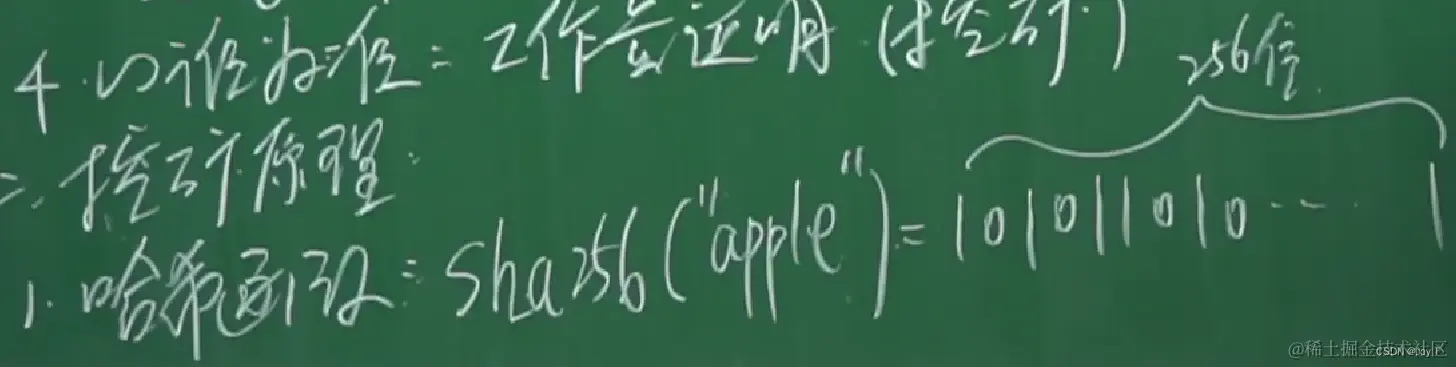 4. 以谁为准: 工作量证明 (挖矿)
256位
二. 挖矿原理:
1. 哈希函数: sha256("apple") = 101011010…… 1
@稀土掘金技术社区
CSDN @Joy T